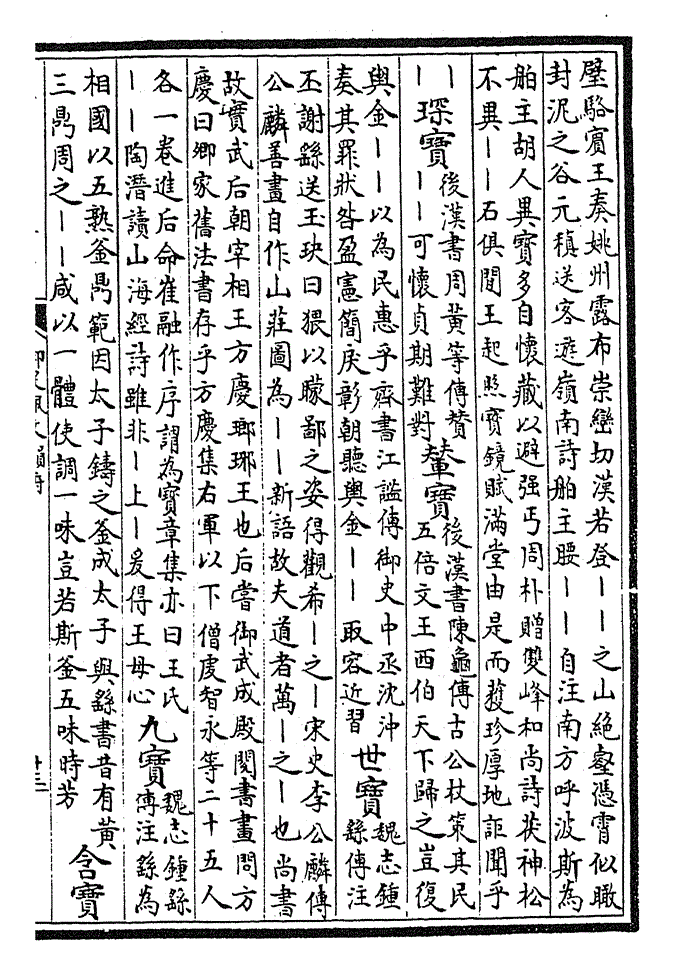 璧駱賓王奏姚州露布崇巒切漢若登丨丨之山絶壑憑霄似瞰
封泥之谷元稹送客遊嶺南詩舶主腰丨丨自注南方呼波斯為
舶主胡人異寶多自懷藏以避强丐周朴贈雙峰和尚詩茯神松
不異丨丨石俱閒王起照寶鏡賦滿堂由是而獲珍厚地詎聞乎
丨丨
琛寶
後漢書周黄等傳贊
丨丨可懷貞期難對
輦寶
後漢書陳龜傳古公杖策其民
五倍文王西伯天下歸之豈復
輿金丨丨以為民惠乎齊書江謐傳御史中丞沈沖
奏其罪狀咎盈憲簡戾彰朝聽輿金丨丨取容近習
世寶
魏志鍾
繇傳注
丕謝繇送玉玦曰猥以矇鄙之姿得觀希丨之丨宋史李公麟傳
公麟善畫自作山莊圖為丨丨新語故夫道者萬丨之丨也尚書
故實武后朝宰相王方慶瑯琊王也后嘗御武成殿閱書畫問方
慶曰卿家舊法書存乎方慶集右軍以下僧虔智永等二十五人
各一卷進后命崔融作序謂為寶章集亦曰王氏
丨丨陶潛讀山海經詩雖非丨上丨爰得王母心
九寶
魏志鍾繇
傳注繇為
相國以五熟釜鼎範因太子鑄之釜成太子與繇書昔有黄
三鼎周之丨丨咸以一體使調一味豈若斯釜五味時芳
含寶